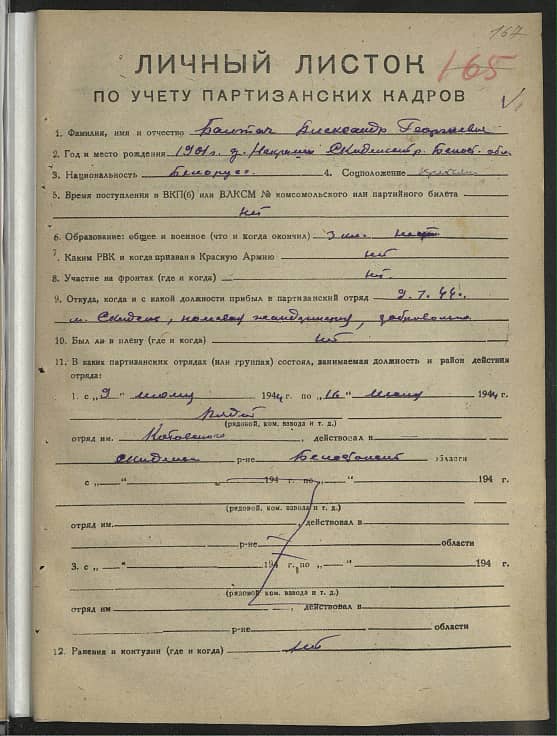 167
165
ЛИЧНЫЙ ЛИСТОК
ПО УЧЕТУ ПАРТИЗАНСКИХ КАДРОВ
1. Фамилия, имя и отчество Александр Георгиевич
2. Год и место рождения 1901 г. д. Некраши Скидельск. р. Белост. обл.
3. Национальность Белорус 4. Соцположение
5. Время поступления в ВКП(б) или ВЛКСМ № комсомольского или партийного билета
нет
6. Образование: общее и военное (что и когда окончил) 3 кл.
7. Каким РВК и когда призван в Красную Армию нет
8. Участие на фронтах (где и когда) нет.
9. Откуда, когда и с какой должности прибыл в партизанский отряд 9.7.44 г.
м. Скидель, добровольно
10. Был ли в плену (где и когда) нет
11. В каких партизанских отрядах (или группах) состоял, занимаемая должность и район действия
отряда:
1. с „9 июля 1944 г. по „16 июля 1944 г.
рядов
(рядовой, ком. взвода и т. д.)
отряд им. Котовского, действовал в
Скидельск р-не Белостокск области
с „ “ 194 г. по „ “ 194 г.
(рядовой, ком. взвода и т. д.)
отряд им. , действовал в
р-не области
3. с „ “ 194 г. по „ “ 194 г.
(рядовой, ком. взвода и т. д.)
отряд им , действовал в
р-не области
12. Ранения и контузии (где и когда) нет